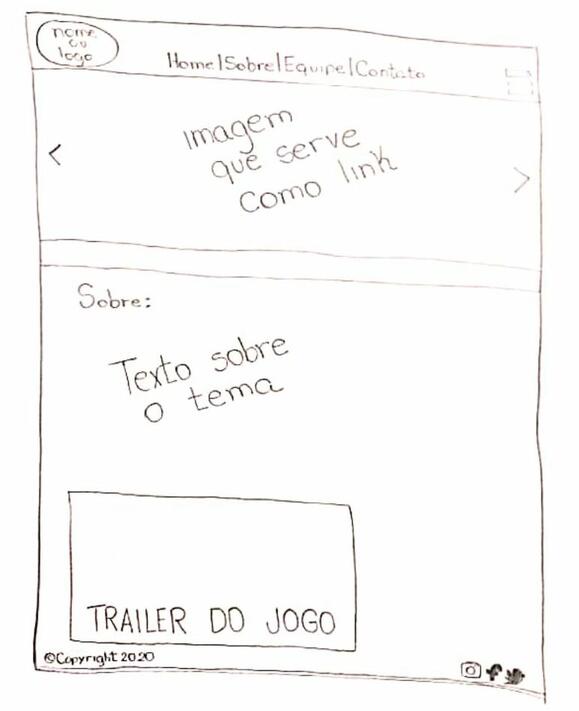 nome
ou
logo
Home|Sobre|Equipe|Contato
<
Imagem
que serve
como link
>
Sobre:
Texto sobre
o tema
TRAILER DO JOGO
©Copyright 2020